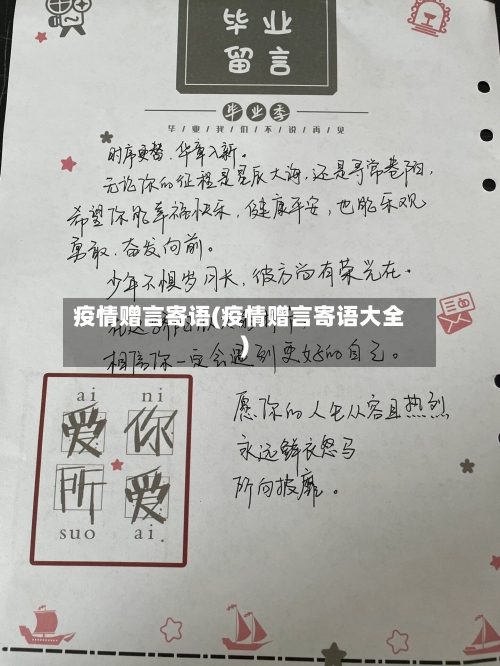 毕业
留言
毕业季
毕/业/我/们/不/说/再/见
时序更替,华章入新。
无论你的征程是星辰大海,还是寻常巷陌,
希望你能幸福快乐,健康平安,也能乐观
勇敢,奋发向前。
少年不惧岁月长,彼方尚有荣光在。
疫情赠言寄语(疫情赠言寄语大全
)
相信你一定会遇到更好的自己。
ai ni
爱你
所爱
suo ai
愿你的人生从容且热烈
永远鲜衣怒马
所向披靡。